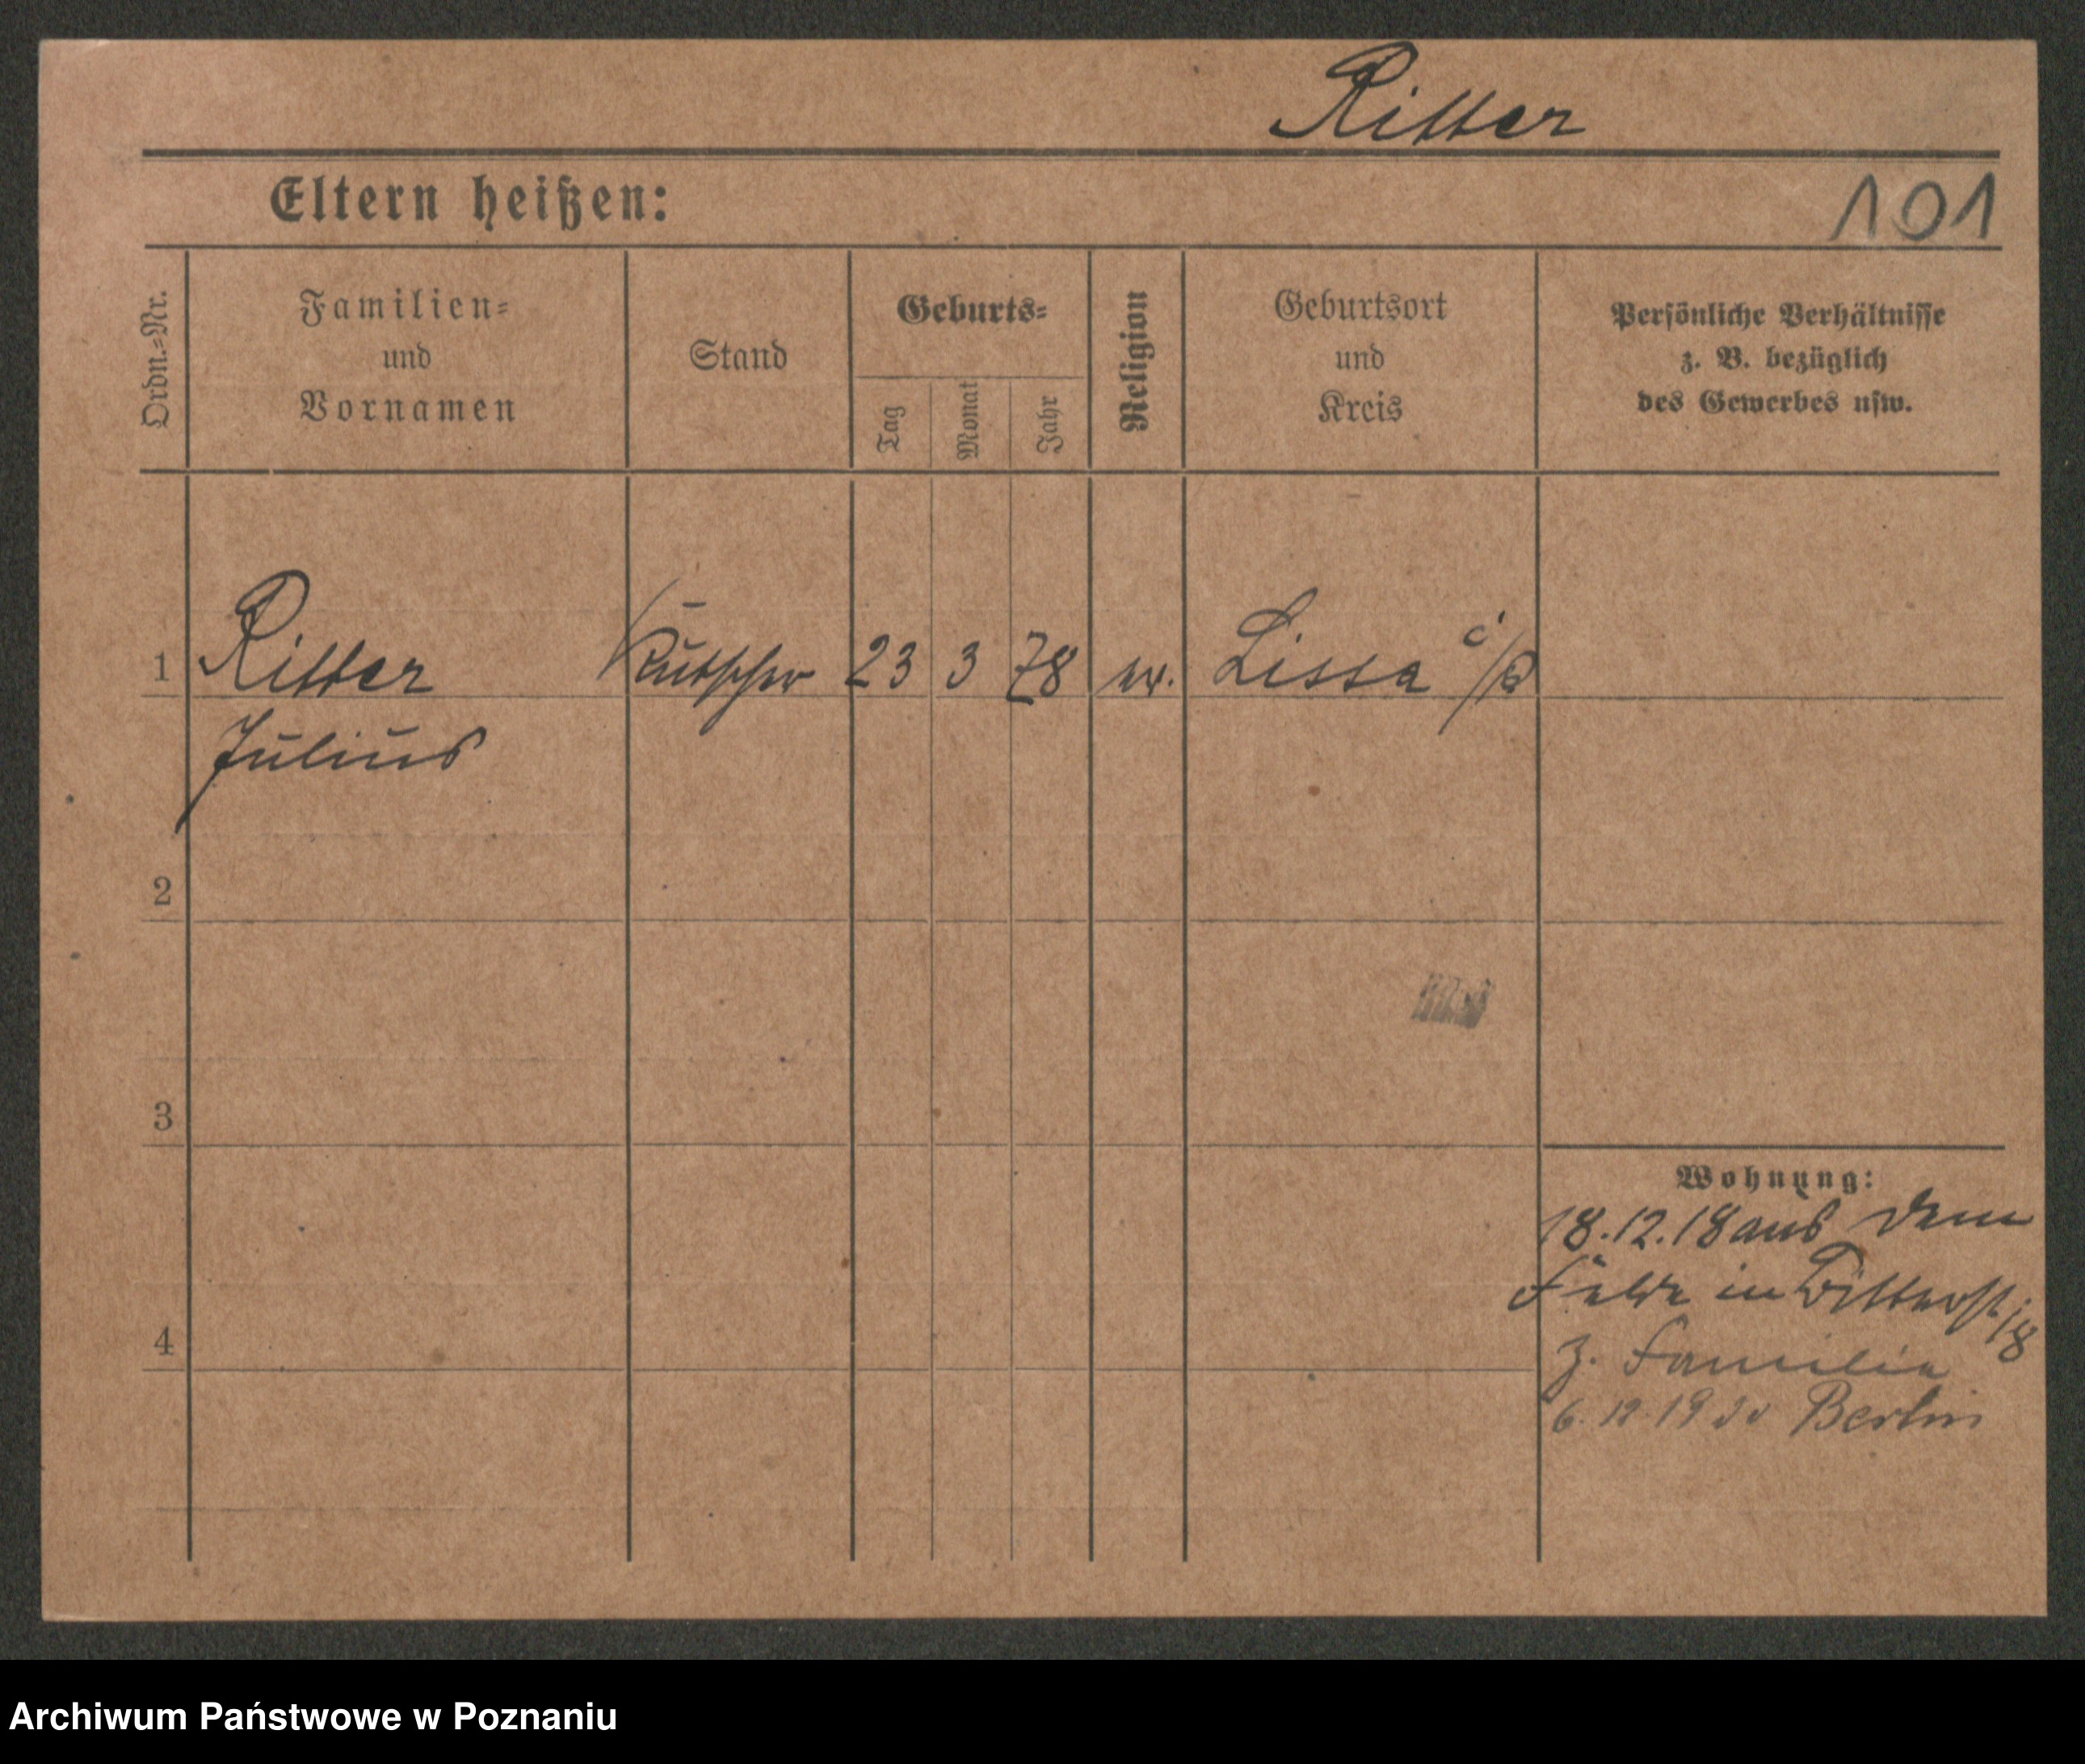 Ritter
Eltern heißen:
101
Ordn.-Nr.
Familien-
und
Vornamen
Stand
Geburts-
Tag
Monat
Jahr
Religion
Geburtsort
und
Kreis
Persönliche Verhältnisse
z. B. bezüglich
des Gewerbes usw.
1 Ritter Kutscher 23 3 78 ev. Lissa i/P
Julius
2
3
4
Wohnung:
18.12.18 aus dem
Felde in 18
z. Familie
6.12.1920 Berlin
Archiwum Państwowe w Poznaniu